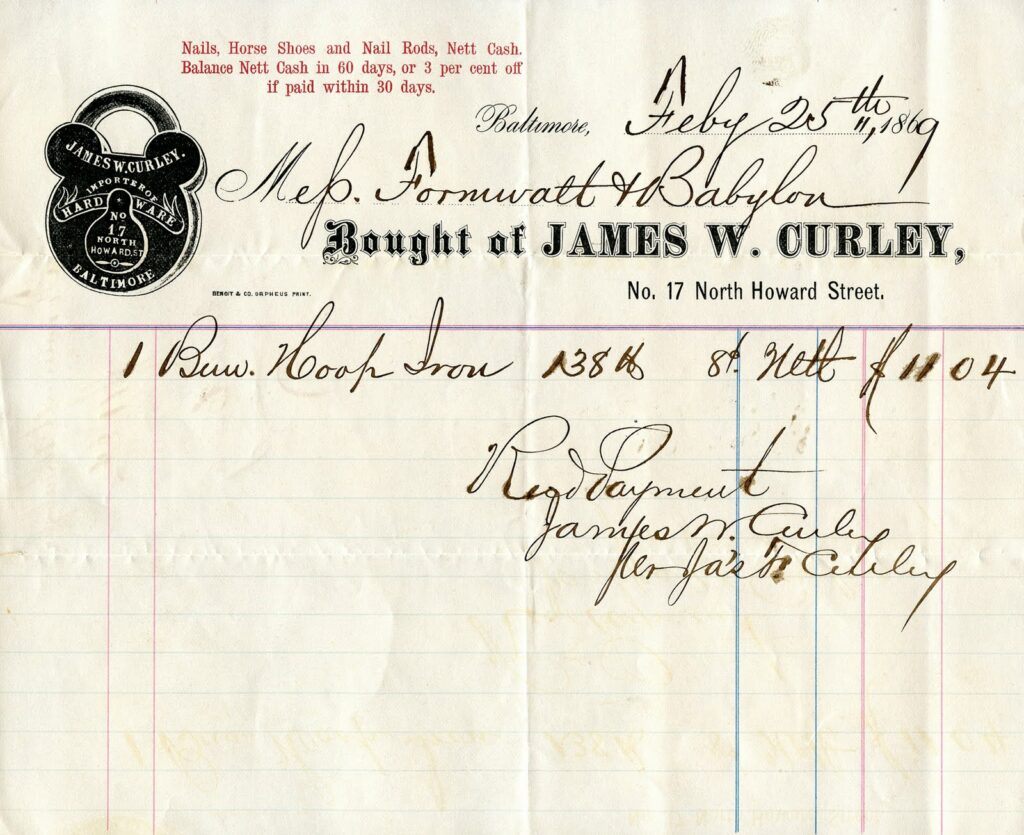 Nails, Horse Shoes and Nail Rods, Nett Cash.
Balance Nett Cash in 60 days, or 3 per cent off
if paid within 30 days.
Baltimore, Feby 25th, 1869
JAMES W. CURLEY.
IMPORTER OF
HARD WARE
No
17
NORTH
HOWARD.ST
BALTIMORE
Mess. Formwalt & Babylon
Bought of JAMES W. CURLEY,
No. 17 North Howard Street.
BENOIT & CO. ORPHEUS PRINT.
1 Bun. Hoop Iron 138 lb 8¢. Nett $ 11 04
Recd Payment
James W. Curley
per Jas F. Curley